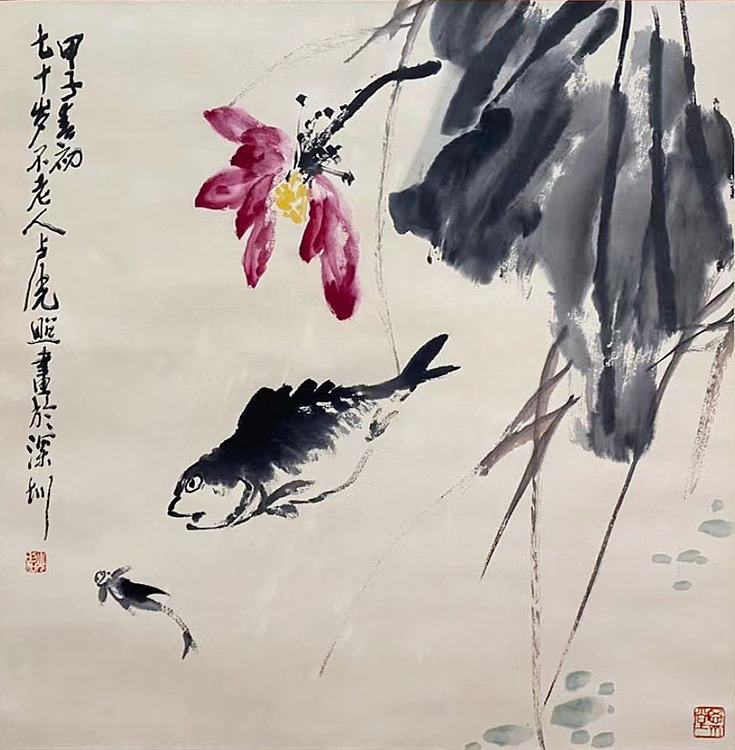 甲子春初
七十岁不老人卢光照画於深圳